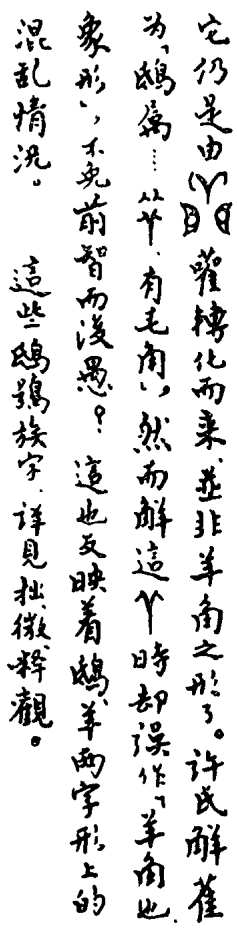 它仍是由嚾轉化而来、並非羊角之形了。許氏解萑
为「鴟属……从、有毛角」，然而解這丫時却误作「羊角也、
象形」，不免前智而後愚？ 這也反映着鴟、羊两字形上的
混乱情况。 這些鴟鴞族字、詳見拙微、釋觀。